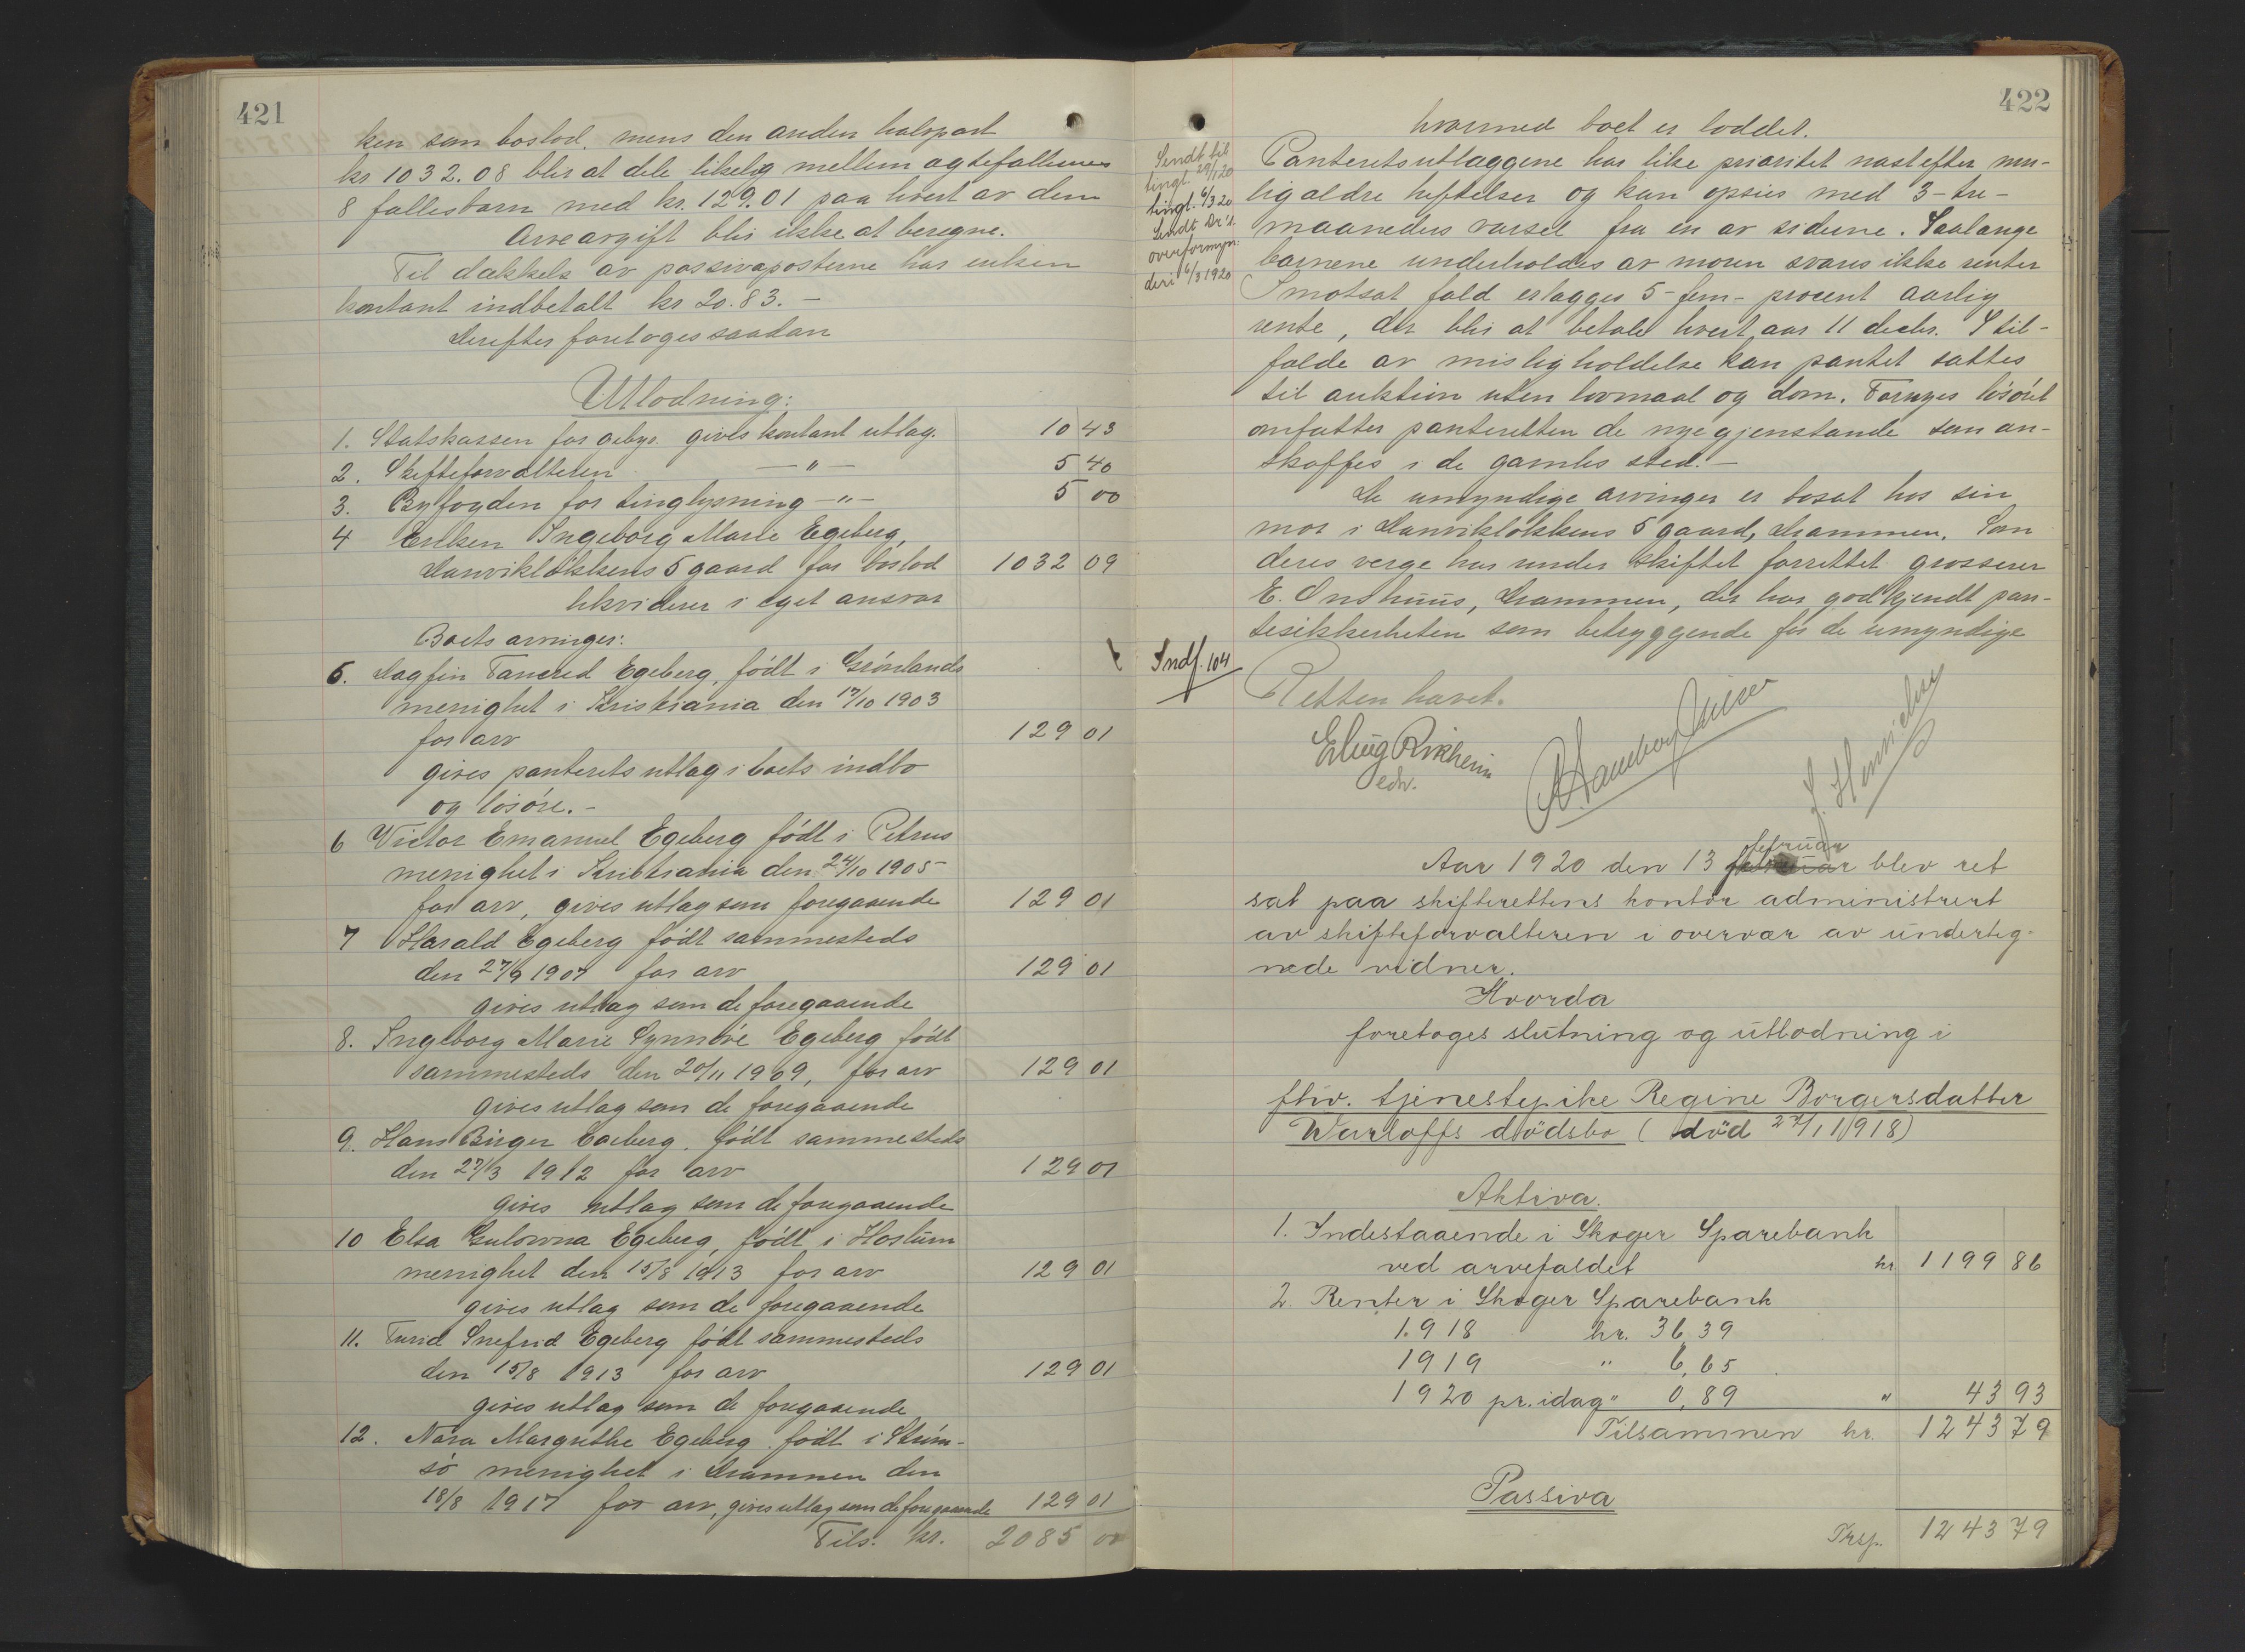 421
ken som boslod, mens den anden halvpart
kr 1032.08 blir at dele likelig mellem egtefællernes
8 fællesbarn med kr. 129.01 paa hvert av dem
Arveavgift blir ikke at beregne.
Til dækkelse av passivaposterne har enken
kontant indbetalt kr 20.83. –
Derefter foretoges saadan
Utlodning:
1. Statskassen for gebyr. gives kontant utlæg. 10 43
2. Skifteforvalteren —"— 5 40
3. Byfogden for tinglysning —"— 5 00
4 Enken Ingeborg Marie Egeberg,
Danvikløkkens 5 gaard for boslod 1032 09
likviderer i eget ansvar
Boets arvinger:
5. Dagfin Tancred Egeberg, født i Grønlands
menighet i Kristiania den 17/10 1903
for arv 129 01
gives panteretsutlæg i boets indbo
og løsøre. –
6 Victor Emanuel Egeberg født i Petrus
menighet i Kristiania den 24/10 1905
for arv, gives utlæg som foregaaende 129 01
7 Harald Egeberg født sammesteds
den 27/9 1907 for arv 129 01
gives utlæg som de foregaaende
8. Ingeborg Marie Synnøve Egeberg født
sammesteds den 20/11 1909, for arv 129 01
gives utlæg som de foregaaende
9. Hans Birger Egeberg, født sammesteds
den 27/3 1912 for arv 129 01
gives utlæg som de foregaaende
10 Elsa Gulowna Egeberg, født i Haslum
menighet den 15/8 1913 for arv 129 01
gives utlæg som de foregaaende
11. Turid Snefrid Egeberg født sammesteds
den 15/8 1913 for arv 129 01
gives utlæg som de foregaaende
12. Nora Margrethe Egeberg født i Strøm-
sø menighet i Drammen den
18/8 1917 for arv, gives utlæg som de foregaaende 129 01
Tils. kr. 2085 00
422
hvormed boet er loddet.
Sendt til
tingl. 29/1 20
tingl. 6/3 20
Sendt Dr's.
overformyn-
deri 6/3 1920
Panteretsutlæggene har like prioritet næstefter mu-
lig ældre heftelser og kan opsies med 3-tre-
maaneders varsel fra en av siderne. Saalænge
barnene underholdes av moren svares ikke renter
I motsat fald erlægges 5-fem- procent aarlig
rente, der blir at betale hvert aar 11 decbr. I til-
fælde av misligholdelse kan pantet sættes
til auktion uten lovmaal og dom. Fornyes løsøret
omfatter panteretten de nye gjenstande som an-
skaffes i de gamles sted. –
De umyndige arvinger er bosat hos sin
mor i Danvikløkkens 5 gaard, Drammen. Som
deres verge har under skiftet forrettet grosserer
E. Onshuus, Drammen, der har godkjendt pan-
tesikkerheten som betryggende for de umyndige
Indf. 104
Retten hævet.
Erling Rikheim
edv.
Aar 1920 den 13 februar blev ret
sat paa skifterettens kontor administrert
av skifteforvalteren i overvær av underteg-
nede vidner.
Hvorda
foretoges slutning og utlodning i
fhv. tjenestepike Regine Borgersdatter
Warloffs dødsbo (død 27/1 1918)
Aktiva.
1. Indestaaende i Skoger Sparebank
ved arvefaldet kr. 1199 86
2. Renter i Skoger Sparebank
1918 kr. 36,39
1919 " 6,65
1920 pr. idag " 0,89 " 43 93
Tilsammen kr. 1243 79
Passiva
Trsp. 1243 79